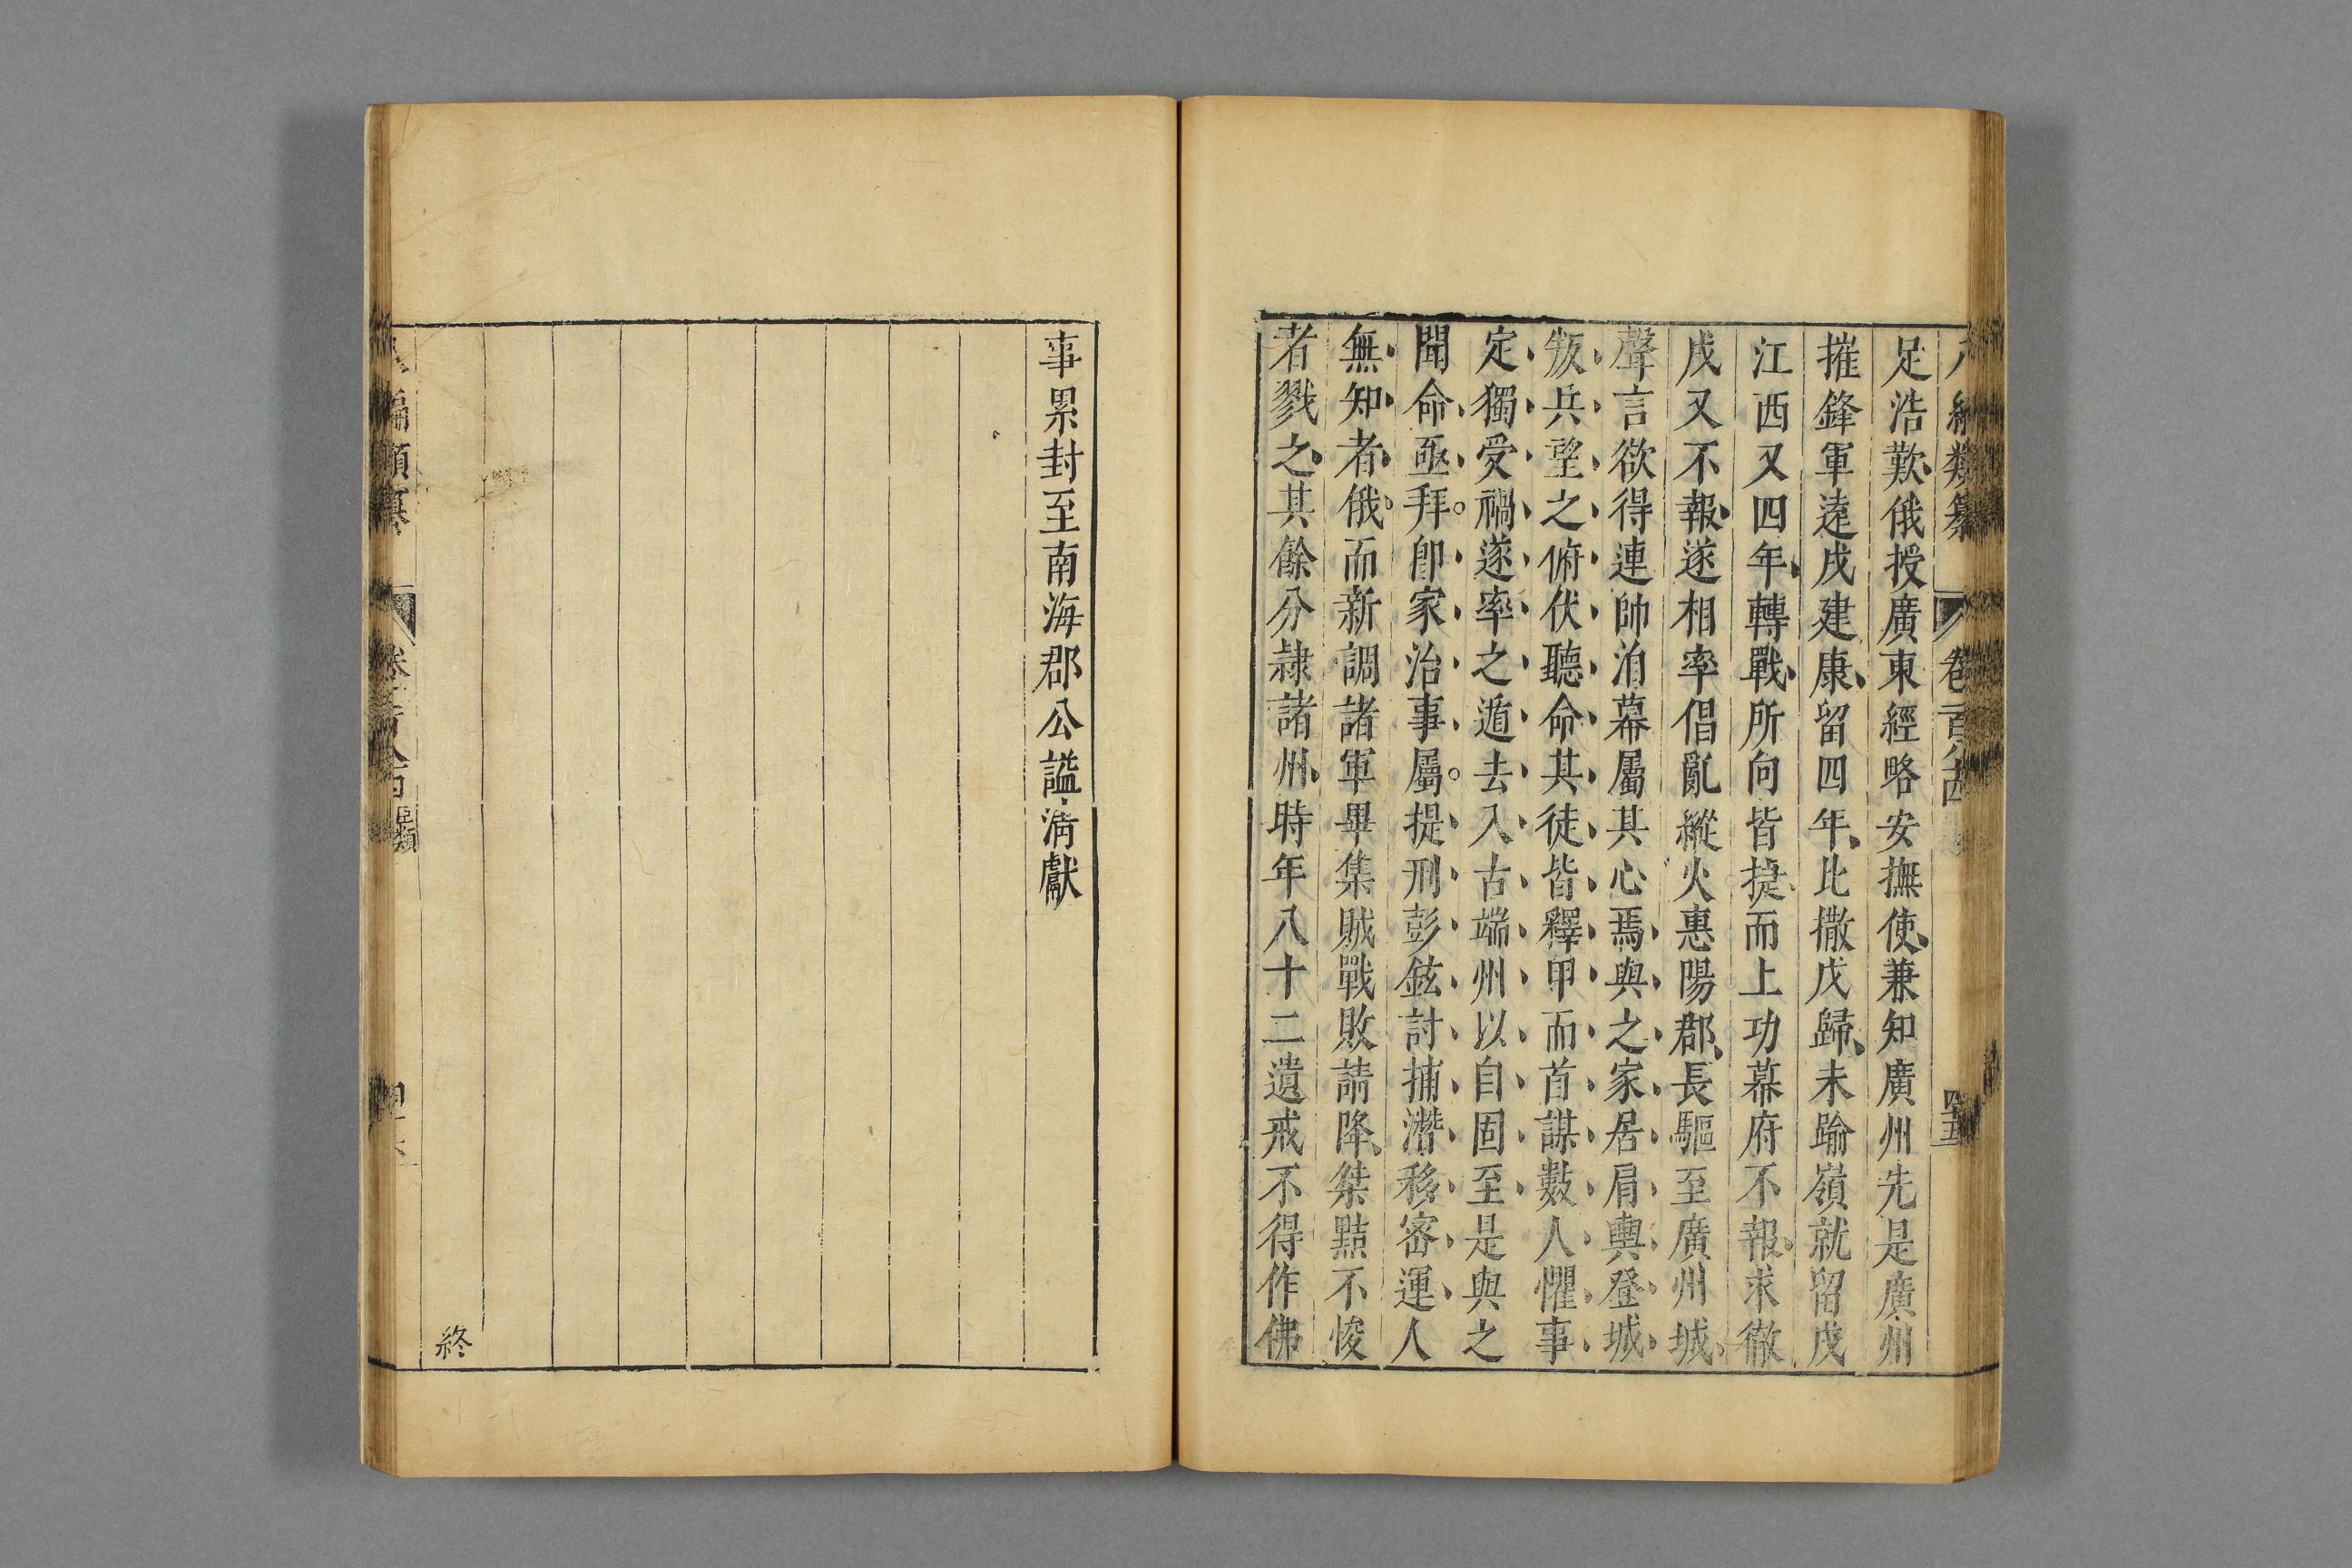 編類纂 卷百八十四 四十五
足浩歎俄授廣東經略安撫使兼知廣州先是廣州
摧鋒軍遠戍建康留四年比撤戍歸未踰嶺就留戍
江西又四年轉戰所向皆捷而上功幕府不報求徹
戍又不報遂相率倡亂縱火惠陽郡長驅至廣州城
聲言欲得連帥洎幕屬其心焉與之家居肩輿登城
叛兵望之俯伏聽命其徒皆釋甲而首謀數人懼事
定獨受禍遂率之遁去入古端州以自固至是與之
聞命亟拜卽家治事屬提刑彭鉉討捕潛移密運人
無知者俄而新調諸軍畢集賊戰敗請降桀黠不悛
者戮之其餘分隷諸州時年八十二遺戒不得作佛
事累封至南海郡公謚清獻
終
編類纂 卷百八十四 臣類